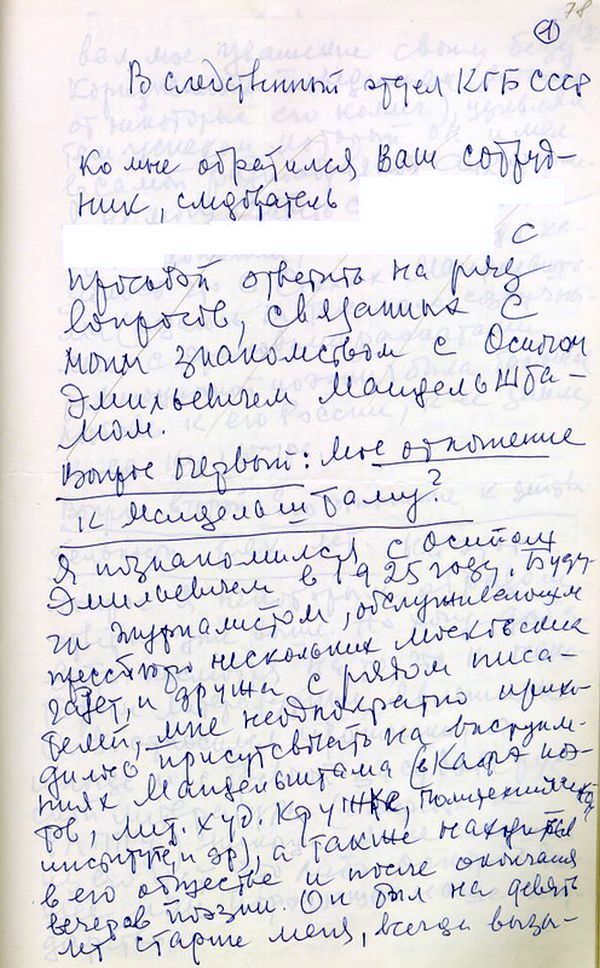 78
1
В следственный отдел КГБ СССР
Ко мне обратился Ваш сотруд-
ник, следователь
с
просьбой ответить на ряд
вопросов, связанных с
моим знакомством с Осипом
Эмильевичем Мандельшта-
мом.
Вопрос первый: Мое отношение
к Мандельштаму?
Я познакомился с Осипом
Эмильевичем в 1925 году. Буду-
чи журналистом, обслуживающим
прессбюро нескольких московских
газет, и дружа с рядом писа-
телей, мне неоднократно прихо-
дилось присутствовать на выступле-
ниях Мандельштама (в Кафэ поэ-
тов, лит. худ. Кружке,
институте, и др), а также находиться
в его обществе и после окончания
вечеров поэзии. Он был на девять
лет старше меня, всегда вызы-